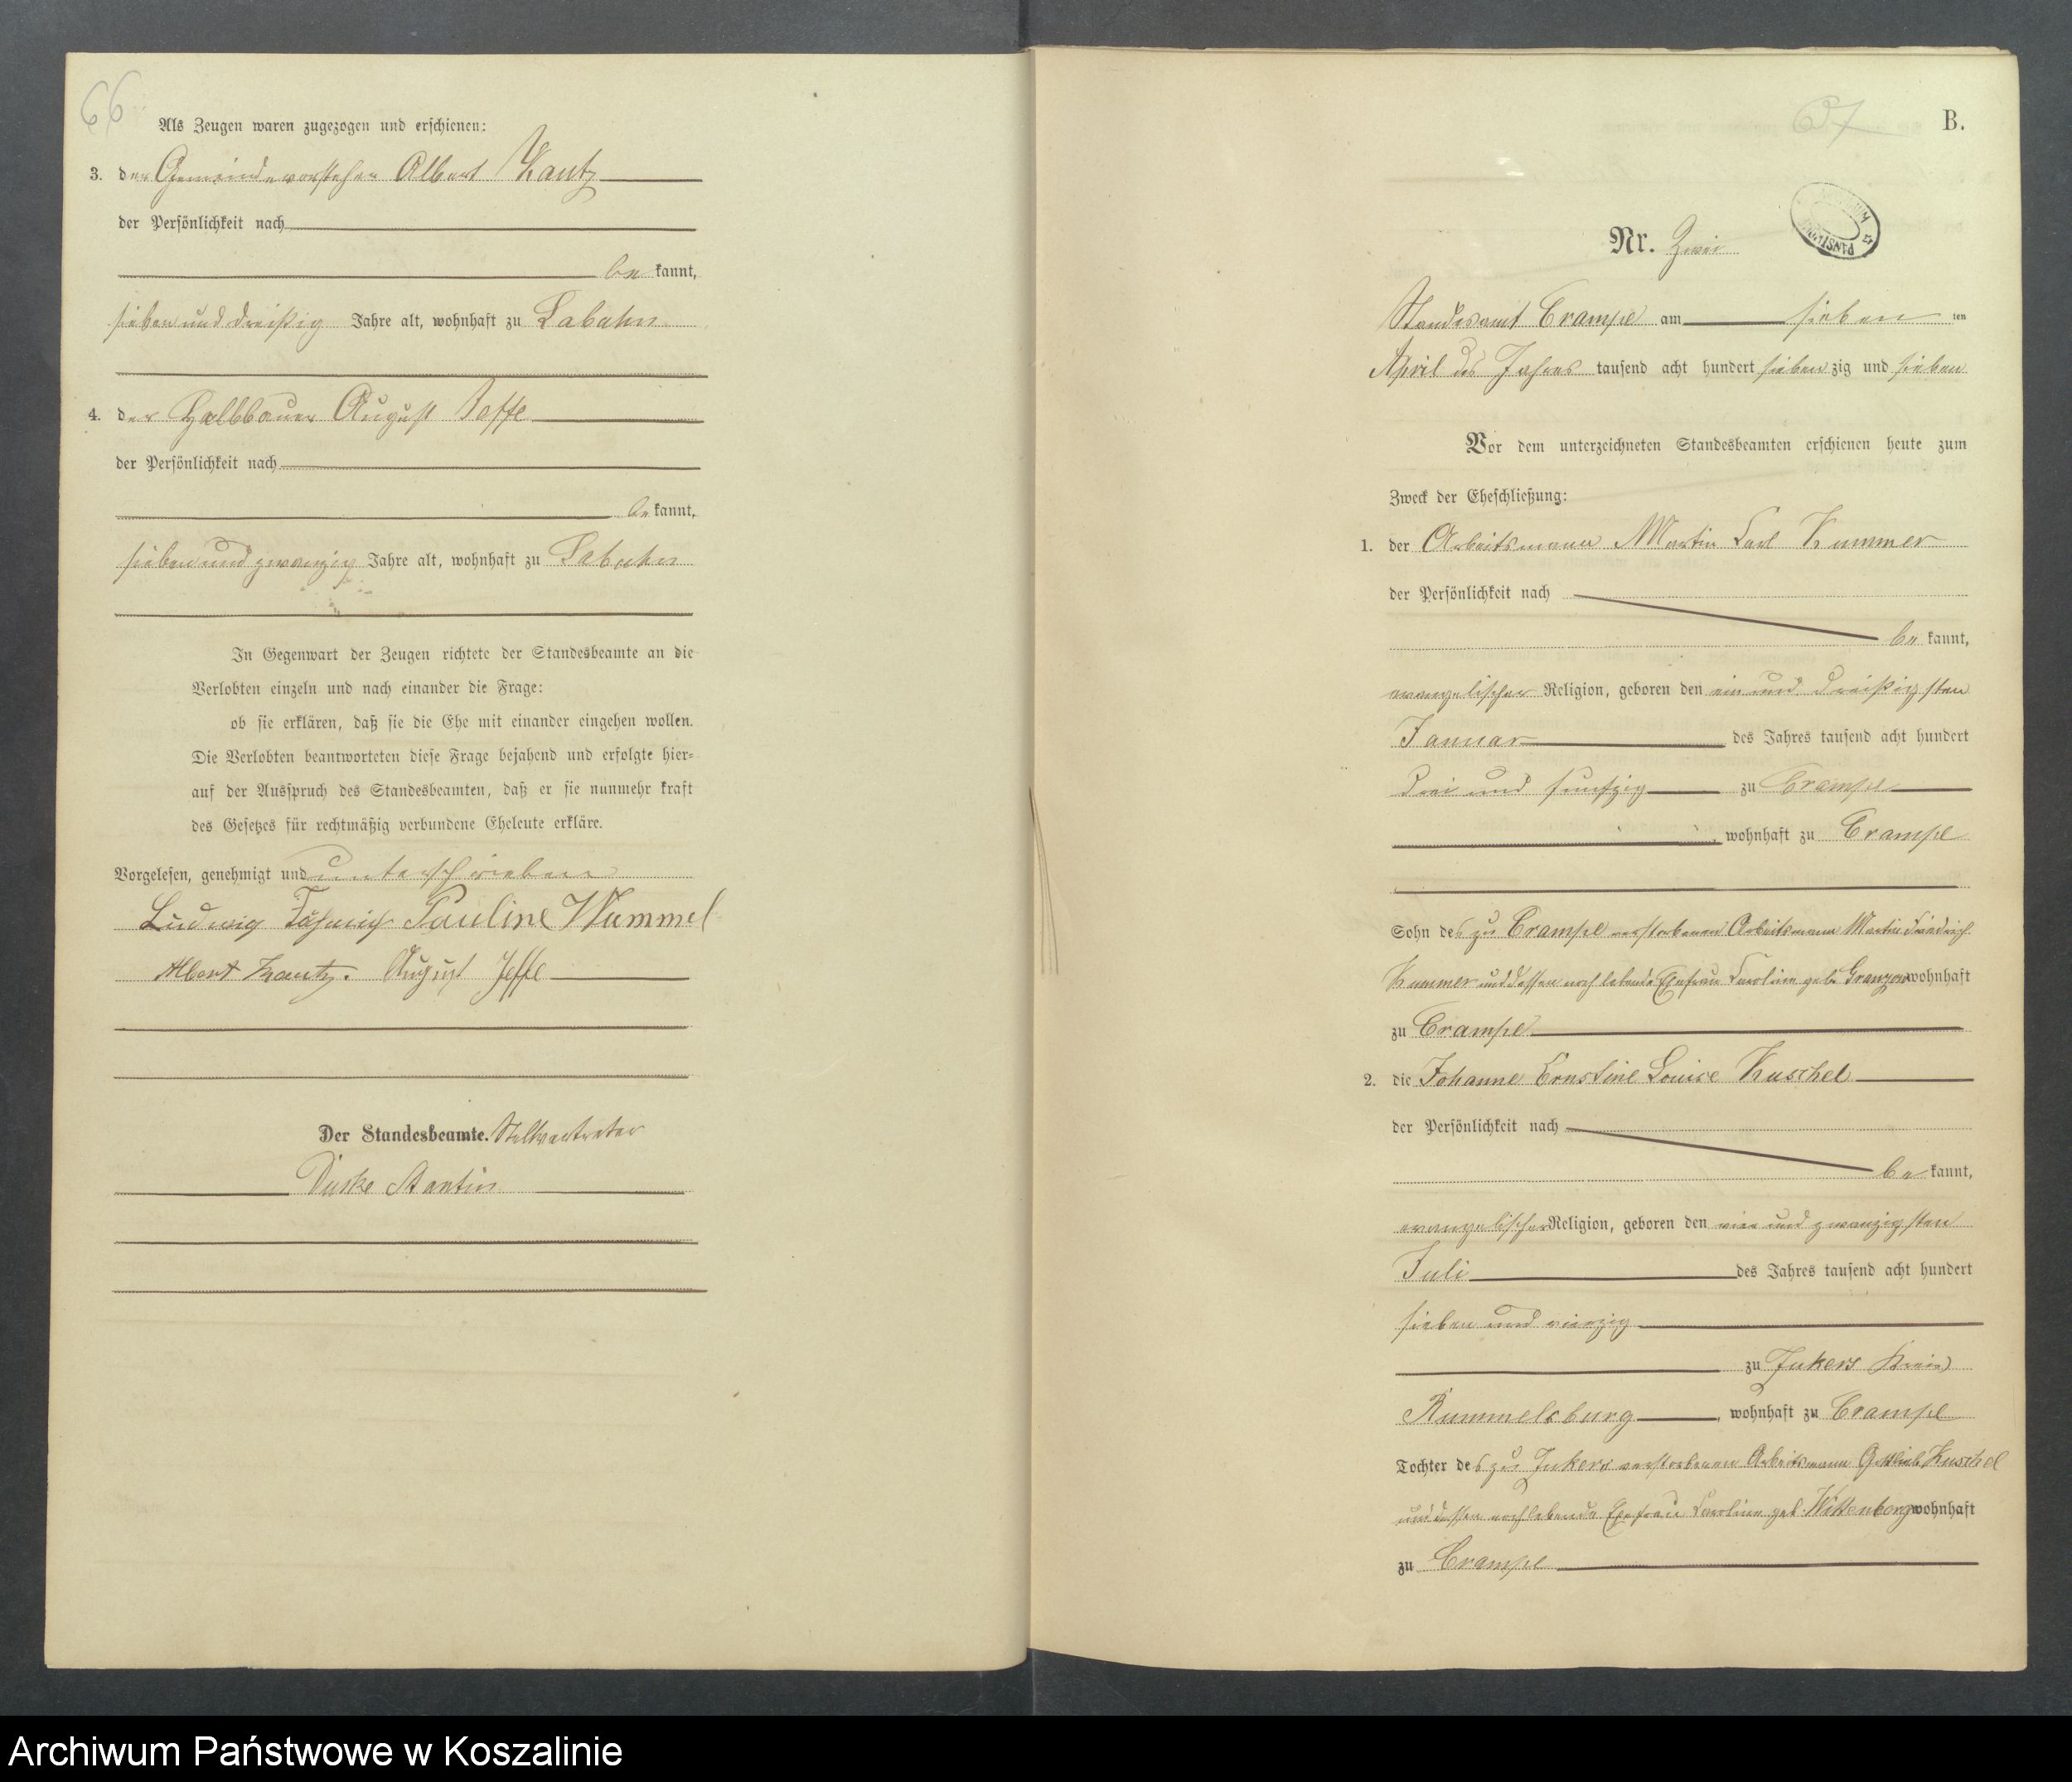 66
Als Zeugen waren zugezogen und erschienen:
3. der Gemeindevorsteher Albert Kautz
der Persönlichkeit nach
be kannt,
sieben und dreißig Jahre alt, wohnhaft zu Labuhn
4. der Halbbauer August Jeffe
der Persönlichkeit nach
be kannt,
sieben und zwanzig Jahre alt, wohnhaft zu Labuhn
In Gegenwart der Zeugen richtete der Standesbeamte an die
Verlobten einzeln und nach einander die Frage:
ob sie erklären, daß sie die Ehe mit einander eingehen wollen.
Die Verlobten beantworteten diese Frage bejahend und erfolgte hier-
auf der Ausspruch des Standesbeamten, daß er sie nunmehr kraft
des Gesetzes für rechtmäßig verbundene Eheleute erkläre.
Vorgelesen, genehmigt und unterschrieben
Ludwig Pauline Wummel
Albert Kautz. August Jeffe
Der Standesbeamte. Stellvertreter
67
B.
Nr. Zwei
Standesamt Crampe am sieben ten
April des Jahres tausend acht hundert sieben zig und sieben
Vor dem unterzeichneten Standesbeamten erschienen heute zum
Zweck der Eheschließung:
1. der Arbeitsmann Martin Carl Kummer
der Persönlichkeit nach
be kannt,
evangelischer Religion, geboren den ein und dreißigsten
Januar des Jahres tausend acht hundert
drei und funfzig zu Crampe
, wohnhaft zu Crampe
Sohn des zu Crampe verstorbenen Arbeitsmann Martin Friedrich
Kummer und dessen noch lebende Ehefrau Caroline geb. Granzow wohnhaft
zu Crampe
2. die Johanne Ernstine Louise Kuschel
der Persönlichkeit nach
be kannt,
evangelischer Religion, geboren den vier und zwanzigsten
Juli des Jahres tausend acht hundert
sieben und vierzig
zu Jukers Kreis
Rummelsburg, wohnhaft zu Crampe
Tochter des zu Jukers verstorbenen Arbeitsmann Gottlieb Kuschel
und dessen noch lebende Ehefrau Caroline geb. Wittenberg wohnhaft
zu Crampe
Archiwum Państwowe w Koszalinie